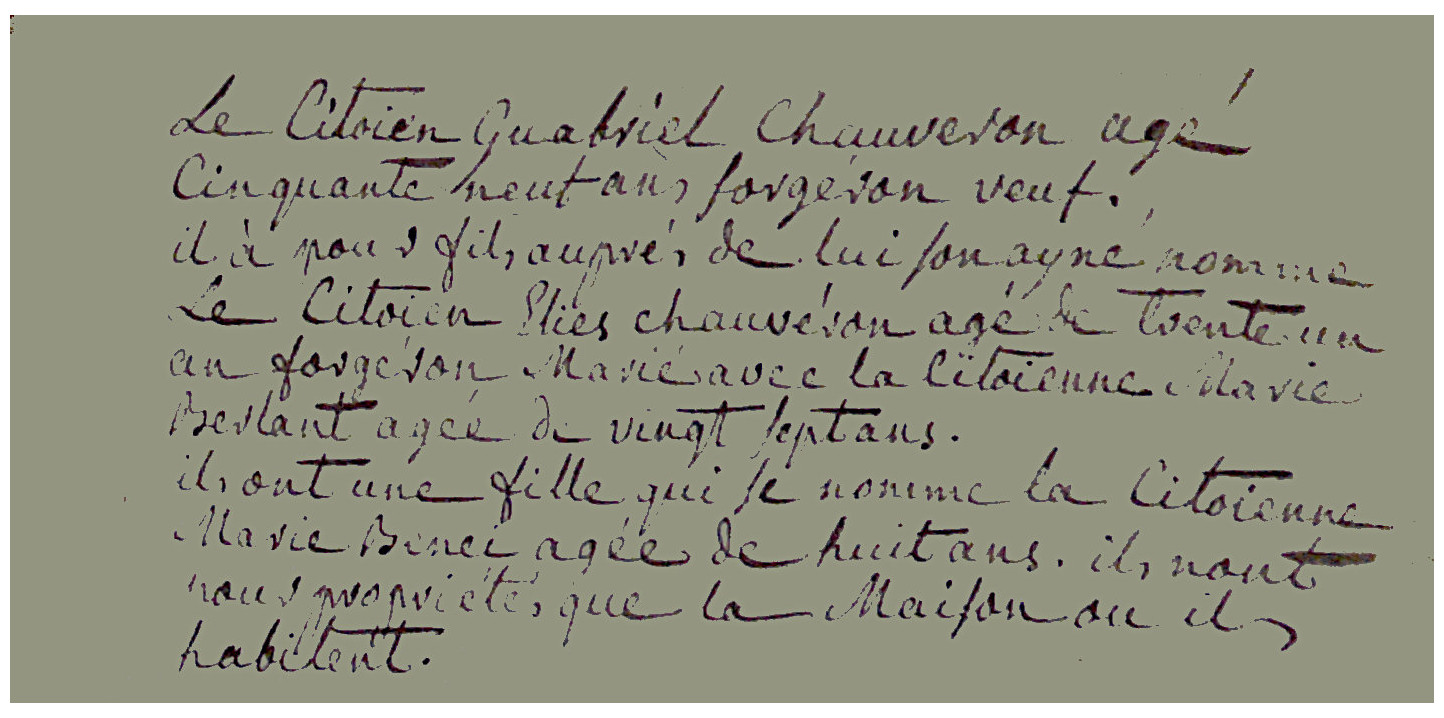 Le Citoien Guabriel Chauveron agé
Cinquante neuf ans forgéron veuf.
il à pour fils auprés de lui son ayné nommé
Le Citoien Elies chauvéron agé de trente un
an forgéron Marié avec la Citoienne Marie
Berlant agée de vingt sept ans.
ils ont une fille qui se nomme la Citoienne
Marie Benei agée de huit ans. ils nont
pour propriétés que la Maison ou ils
habitent.